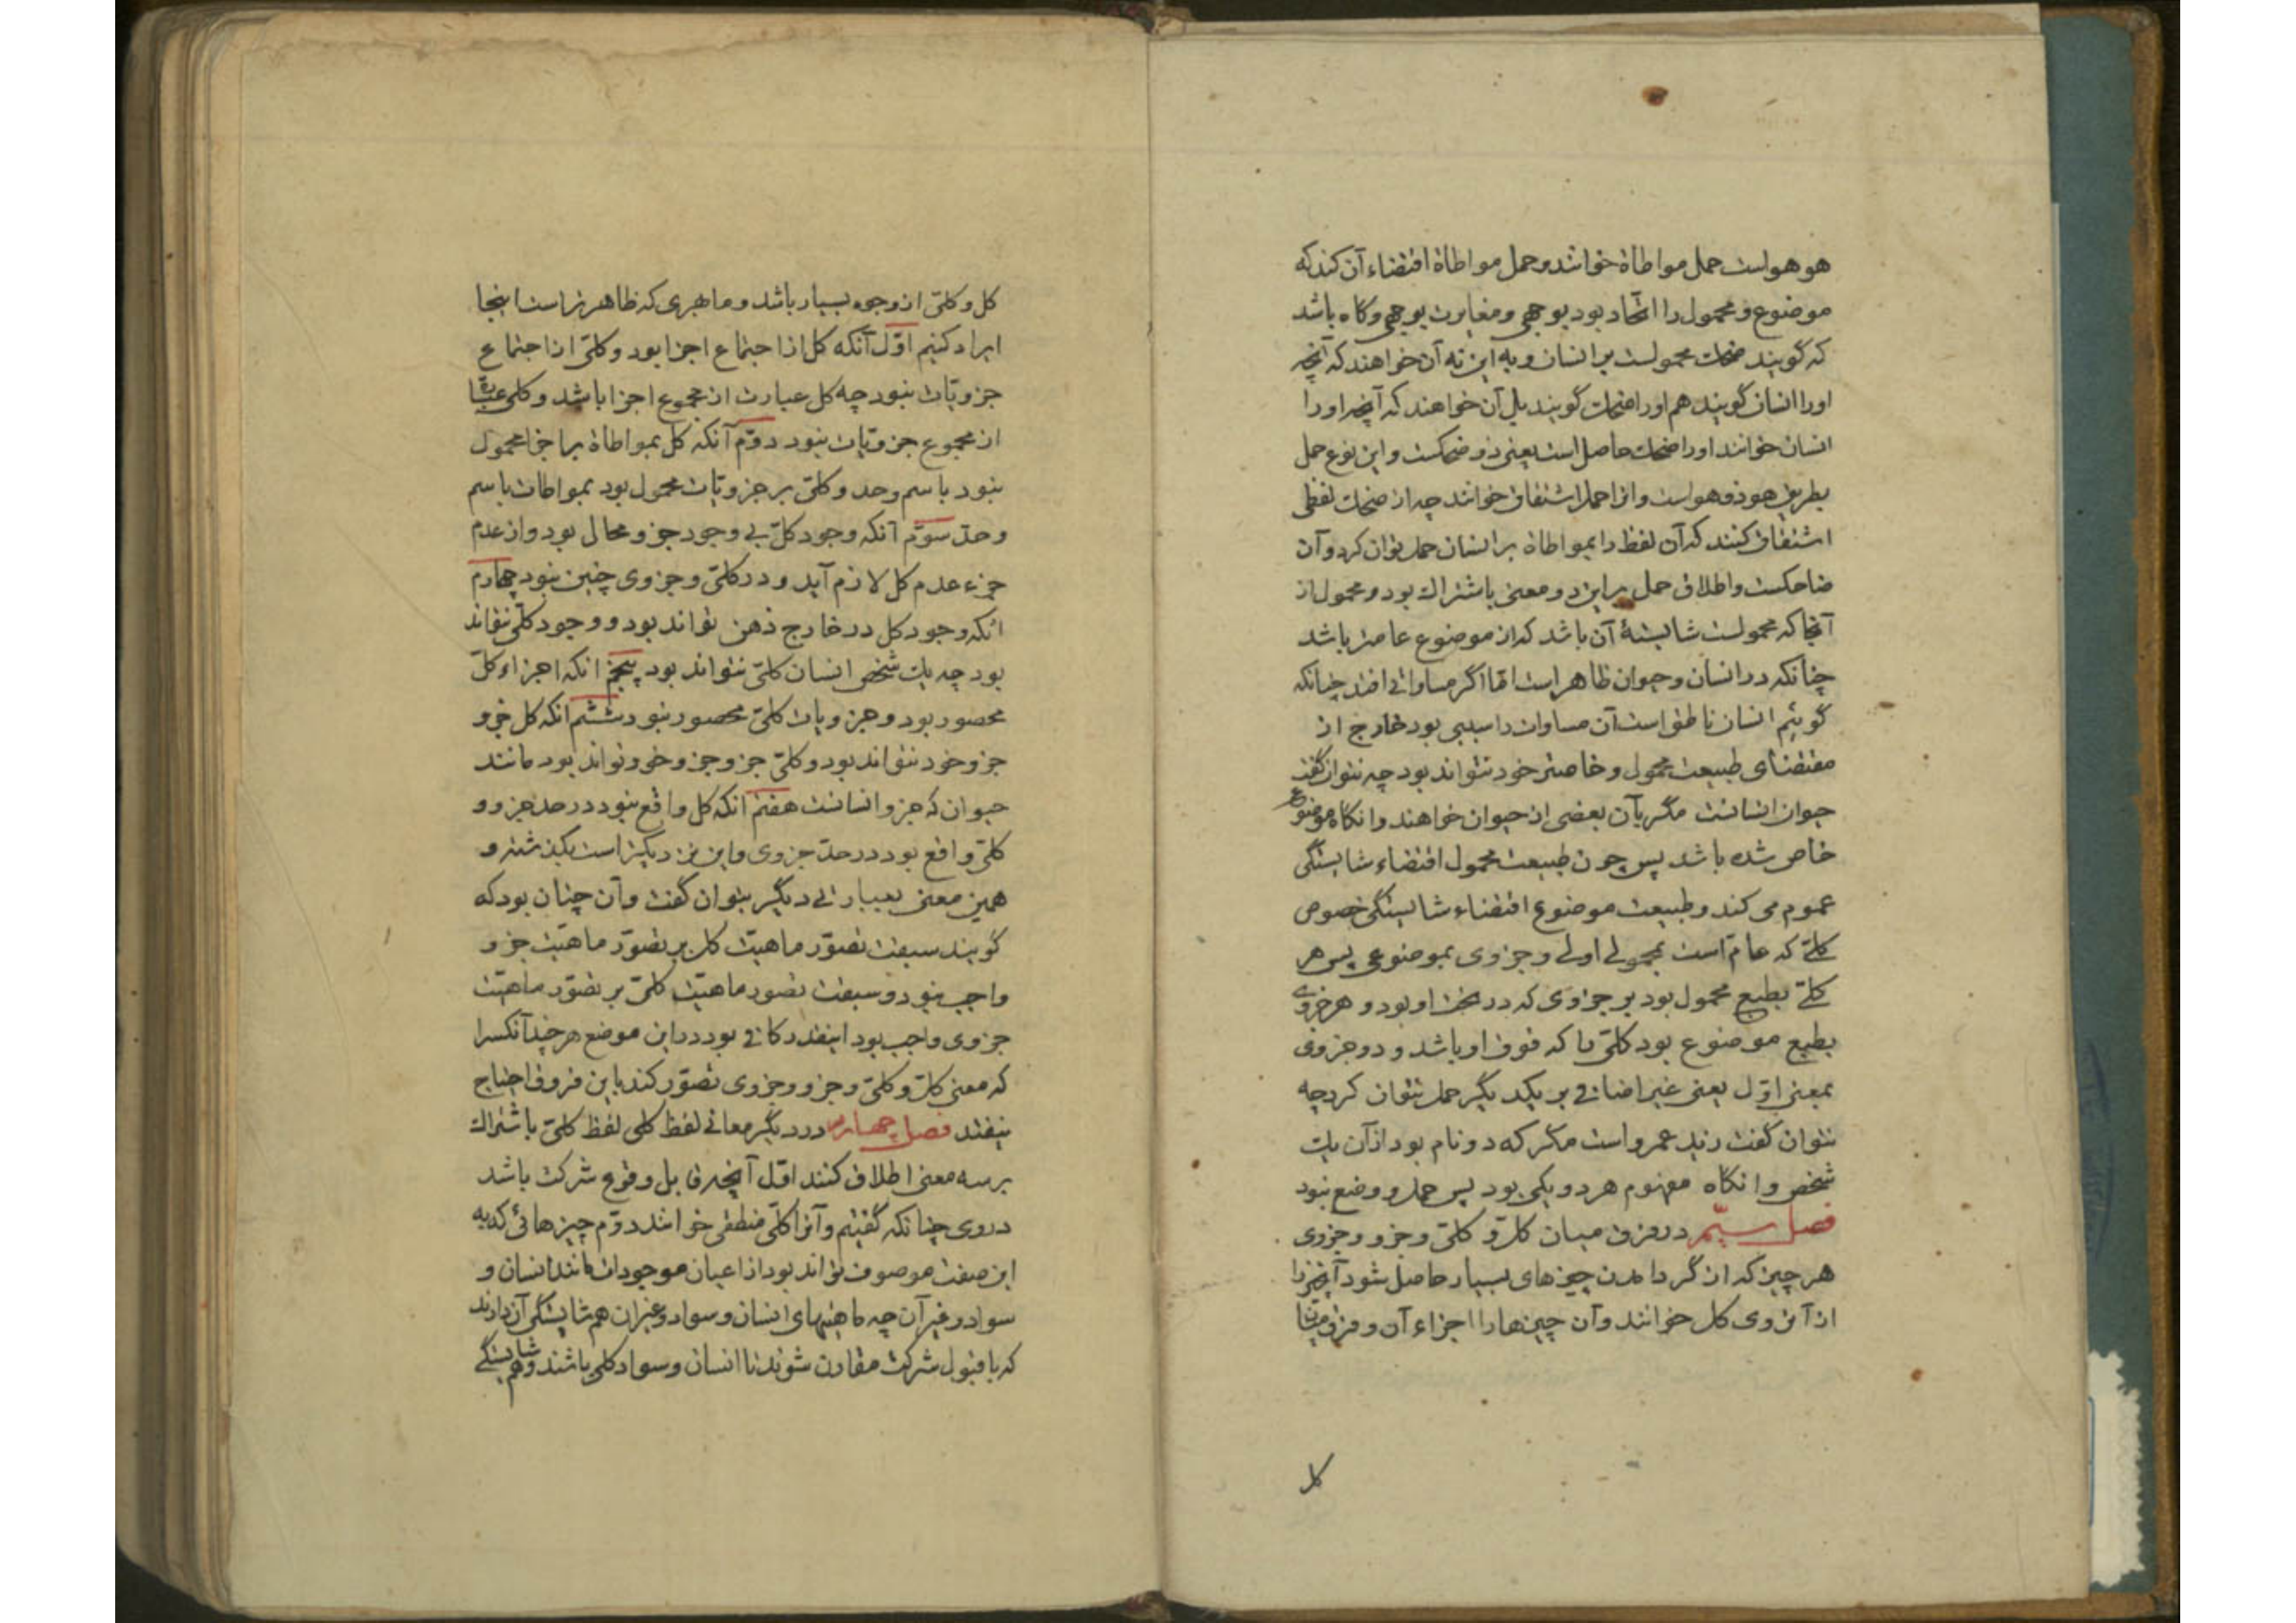 هو هو است حمل مواطاة خوانند و حمل مواطاة اقتضاء آن کند که
موضوع و محمول را اتحاد بود بوجهی و مغایرت بوجهی و گاه باشد
که گویند ضحک محمولست بر انسان و به این نه آن خواهند که آنچه
او را انسان گویند هم او را ضحک گویند بل آن خواهند که آنچه او را
انسان خوانند او را ضحک حاصل است یعنی ذو ضحکست و این نوع حمل
بطریق هو ذو هو است و انرا حمل اشتقاق خوانند چه از ضحک لفظی
اشتقاق کنند که آن لفظ را بمواطاة بر انسان حمل توان کرد و آن
ضاحکست و اطلاق حمل بر این دو معنی باشتراک بود و محمول از
آنجا که محمولست شایستهٔ آن باشد که از موضوع عامتر باشد
چنانکه در انسان و حیوان ظاهر است اما اگر مساواتی افتد چنانکه
گوئیم انسان ناطق است آن مساوات را سببی بود خارج از
مقتضای طبیعت محمول و خاصتر خود نتواند بود چه نتوان گفت
حیوان انسانست مگر بآن بعضی از حیوان خواهند و انگاه موضوع
خاص شده باشد پس چون طبیعت محمول اقتضاء شایستگی
عموم می کند و طبیعت موضوع اقتضاء شایستگی خصوص
کلی که عام است بمحمولی اولی و جزوی بموضوعی پس هر
کلی بطبع محمول بود بر جزوی که در تحت او بود و هر جزوی
بطبع موضوع بود کلی را که فوق او باشد و دو جزوی
بمعنی اول یعنی غیر اضافی بر یکدیگر حمل نتوان کرد چه
نتوان گفت زید عمرو است مگر که دو نام بود از آن یک
شخص و انگاه مفهوم هر دو یکی بود پس حمل و وضع نبود
فصل سیم در فرق میان کل و کلی و جزو و جزوی
هر چیز که از گرد امدن چیزهای بسیار حاصل شود آنچیز را
از آنروی کل خوانند و آن چیزها را اجزاء آن و فرق میان
کل
کل و کلی از وجوه بسیار باشد و ما بهری که ظاهرتر است اینجا
ایراد کنیم اول آنکه کل از اجتماع اجزا بود و کلی از اجتماع
جزویات نبود چه کل عبارت از مجموع اجزا باشد و کلی عبارة
از مجموع جزویات نبود دوم آنکه کل بمواطاة بر اجزا محمول
نبود باسم و حد و کلی بر جزویات محمول بود بمواطات باسم
و حد سوم آنکه وجود کل بی وجود جزو محال بود و از عدم
جزء عدم کل لازم آید و در کلی و جزوی چنین نبود چهارم
انکه وجود کل در خارج ذهن تواند بود و وجود کلی نتواند
بود چه یک شخص انسان کلی نتواند بود پنجم انکه اجزاء کل
محصور بود و جزویات کلی محصور نبود ششم انکه کل جزو
جزو خود نتواند بود و کلی جزو جزو خود تواند بود مانند
حیوان که جزو انسانست هفتم انکه کل واقع نبود در حد جزو و
کلی واقع بود در حد جزوی و این نزدیکتر است بگذشته و
همین معنی بعبارتی دیگر بتوان گفت و آن چنان بود که
گویند سبقت تصور ماهیت کل بر تصور ماهیت جزو
واجب نبود و سبقت تصور ماهیت کلی بر تصور ماهیت
جزوی واجب بود اینقدر کافی بود در این موضع هر چند آنکس را
که معنی کل و کلی و جزو و جزوی تصور کند باین فروق احتیاج
نیفتد فصل چهارم در دیگر معانی لفظ کلی لفظ کلی باشتراک
بر سه معنی اطلاق کنند اول آنچه قابل وقوع شرکت باشد
در وی چنانکه گفتیم و آنرا کلی منطقی خوانند دوم چیزهائی که به
این صفت موصوف تواند بود از اعیان موجودات مانند انسان و
سواد و غیر آن چه ماهیتهای انسان و سواد و غیر ان هم شایستگی آن دارند
که با قبول شرکت مقارن شوند تا انسان و سواد کلی باشند و هم شایستگی